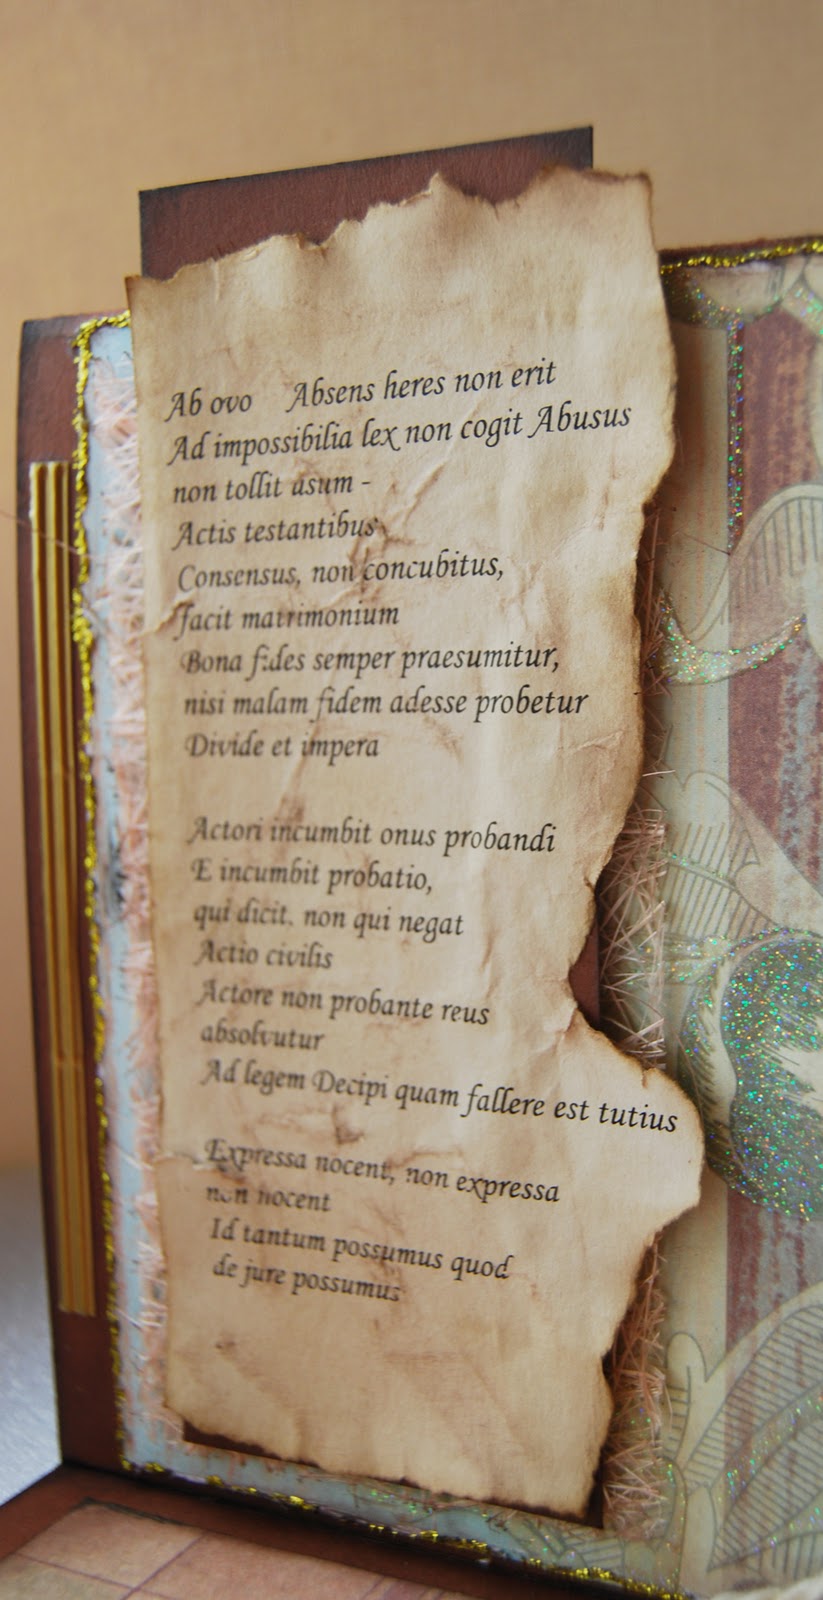 Ab ovo Absens heres non erit
Ad impossibilia lex non cogit Abusus
non tollit asum -
Actis testantibus
Consensus, non concubitus,
facit matrimonium
Bona fides semper praesumitur,
nisi malam fidem adesse probetur
Divide et impera
Actori incumbit onus probandi
E incumbit probatio,
qui dicit. non qui negat
Actio civilis
Actore non probante reus
absolvutur
Ad legem Decipi quam fallere est tutius
Expressa nocent, non expressa
non nocent
Id tantum possumus quod
de jure possumus